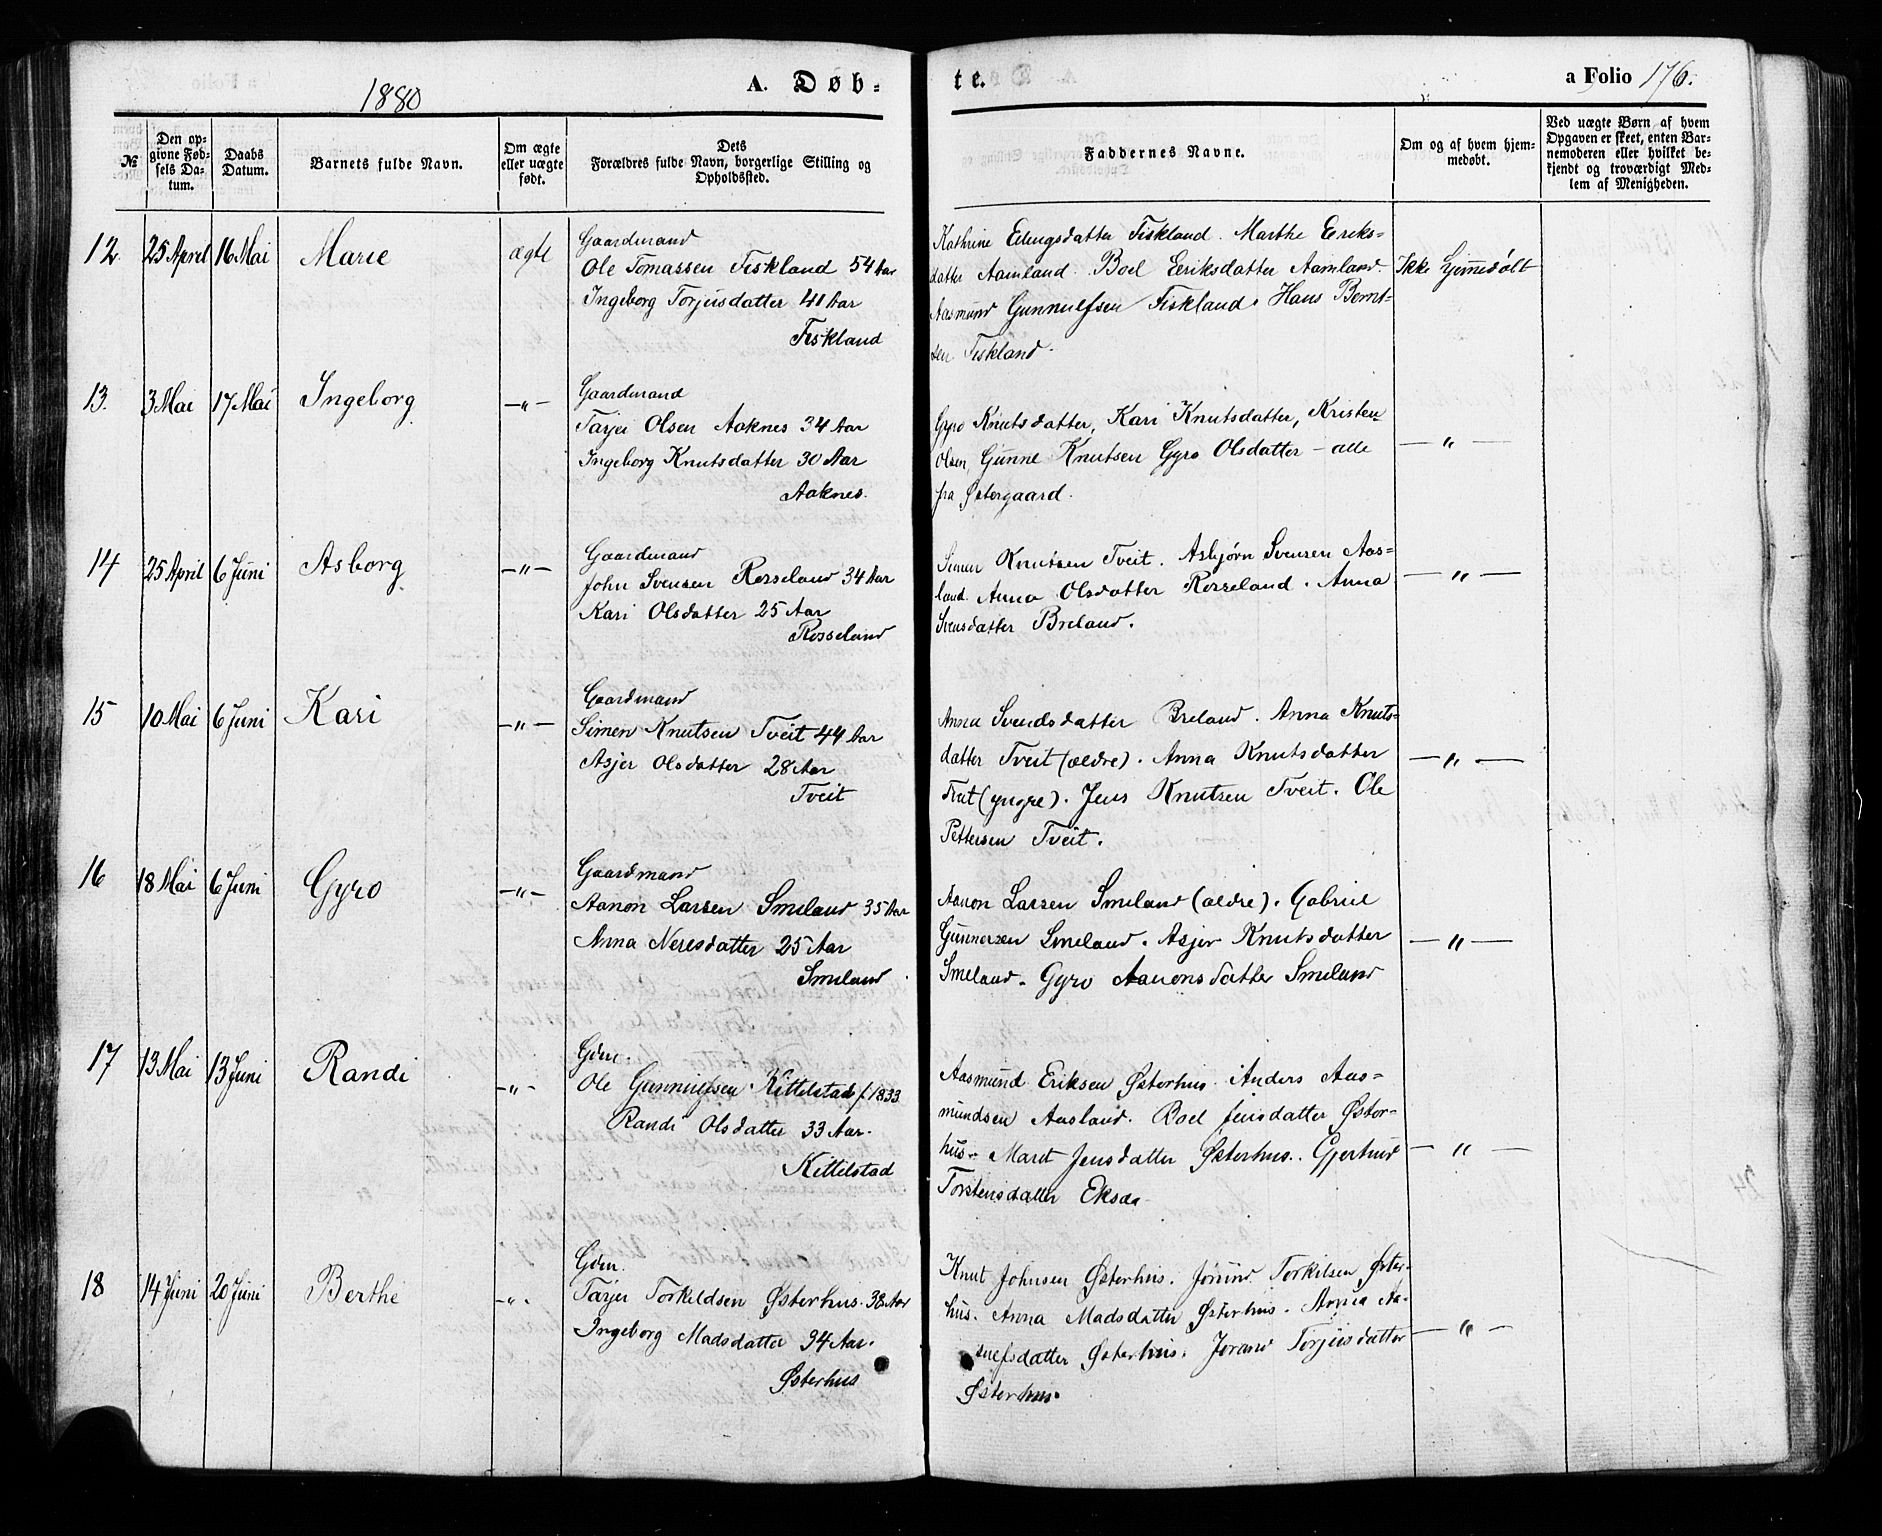 1880 A. Døb-
te. a Folio 176.
№
Den op-
givne Fød-
sels Da-
tum.
Daabs
Datum.
Barnets fulde Navn.
Om ægte
eller uægte
født.
Dets
Forældres fulde Navn, borgerlige Stilling og
Opholdssted.
Faddernes Navne.
Om og af hvem hjem-
medøbt.
Ved uægte Børn af hvem
Opgaven er skeet, enten Bar-
nemoderen eller hvilket be-
kjendt og troværdigt Med-
lem af Menigheden.
12. 25 April 16 Mai Marie ægte
Gaardmand
Ole Tomassen Fiskland 54 Aar
Ingeborg Torjusdatter 41 Aar
Fiskland
Kathrine Ellingsdatter Fiskland. Marthe Eeriks-
datter Aamland. Boel Eeriksdatter Aamland.
Aasmund Gunnulfsen Fiskland. Hans Bernt-
sen Fiskland.
Ikke hjemmedøbt
13. 3 Mai 17 Mai Ingeborg —"—
Gaardmand
Tarjei Olsen Aaknes 34 Aar
Ingeborg Knutsdatter 30 Aar
Aaknes.
Gyro Knutsdatter, Kari Knutsdatter, Kristen
Olsen, Gunne Knutsen Gyro Olsdatter — alle
fra Østergaard.
—"—
14 25 April 6 Juni Asborg —"—
Gaardmand
John Svensen Rosseland 34 Aar
Kari Olsdatter 25 Aar
Rosseland
Simen Knutsen Tveit. Asbjørn Svensen Aas-
land. Anna Olsdatter Rosseland. Anna
Svensdatter Breland.
—"—
15 10 Mai 6 Juni Kari —"—
Gaardmand
Simen Knutsen Tveit 44 Aar
Asjer Olsdatter 28 Aar
Tveit
Anna Svendsdatter Breland. Anna Knuts-
datter Tveit (ældre). Anna Knutsdatter
Tveit (yngre). Jens Knutsen Tveit. Ole
Pettersen Tveit.
—"—
16 18 Mai 6 Juni Gyro —"—
Gaardmand
Aanon Larsen Smeland 35 Aar
Anna Neresdatter 25 Aar
Smeland
Aanon Larsen Smeland (ældre). Gabriel
Gunnersen Smeland. Asjer Knutsdatter
Smeland. Gyro Aanonsdatter Smeland
—"—
17 13 Mai 13 Juni Randi —"—
Gdm.
Ole Gunnulfsen Kittelstad f. 1833
Randi Olsdatter 33 Aar.
Kittelstad
Aasmund Eriksen Østerhus. Anders Aas-
mundsen Aasland. Boel Jensdatter Øster-
hus. Maret Jensdatter Østerhus. Gjertrud
Torstensdatter Eksaa
—"—
18 14 Juni 20 Juni Berthe —"—
Gdm.
Tarjei Torkildsen Østerhus. 38 Aar
Ingeborg Madsdatter 34 Aar.
Østerhus
Knut Johnsen Østerhus. Torkilsen Øster-
hus. Anna Madsdatter Østerhus. Anna Aa-
Østerhus. Jorand Torjusdatter
Østerhus.
—"—